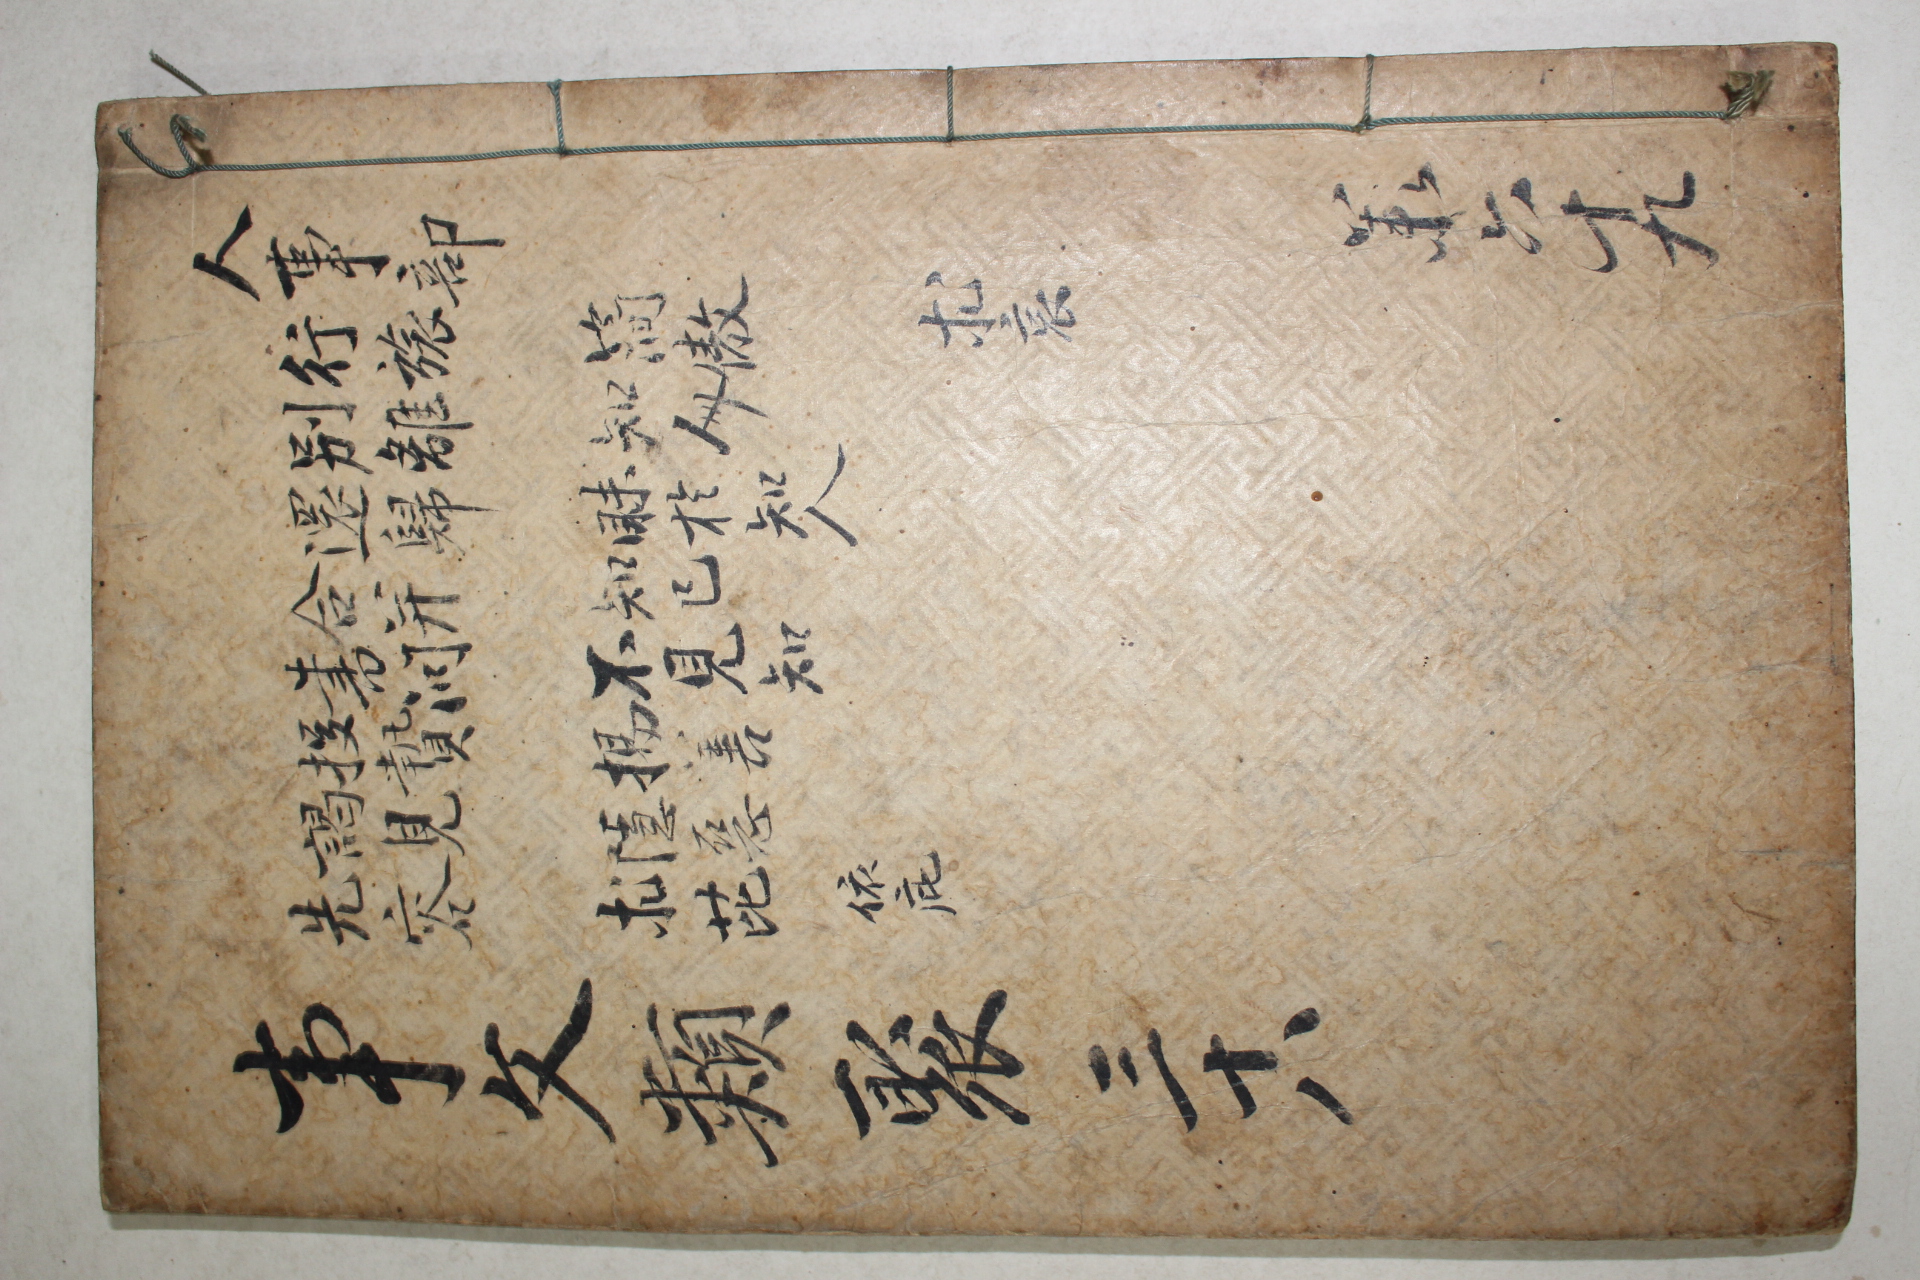 人事部
行旅
別離
還歸
合并
書問
投贄
謁見
先容
簡傲
知人
昧於知人
知己
不見知
揚善
隱惡
求芘
依庇
求哀
六十九
事文類聚 三十八